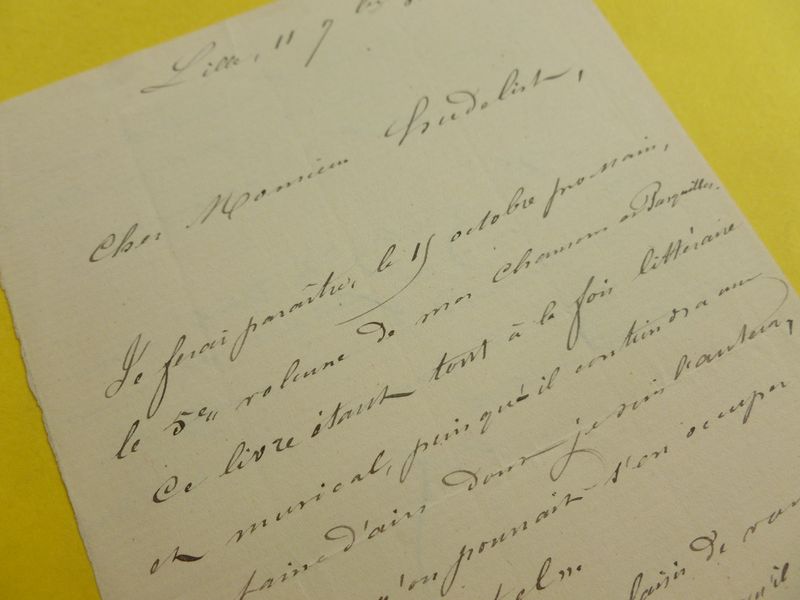 Lille, 11 7bre
Cher Monsieur
Je ferai paraître, le 15 octobre prochain,
le 5eme volume de mes chansons et Pasquilles.
Ce livre étant tout à la fois littéraire
et musical, puisqu'il contiendra une
taine d'airs dont je suis l'auteur,
qu'on pourrait s'en occuper
plaisir de
qu'il